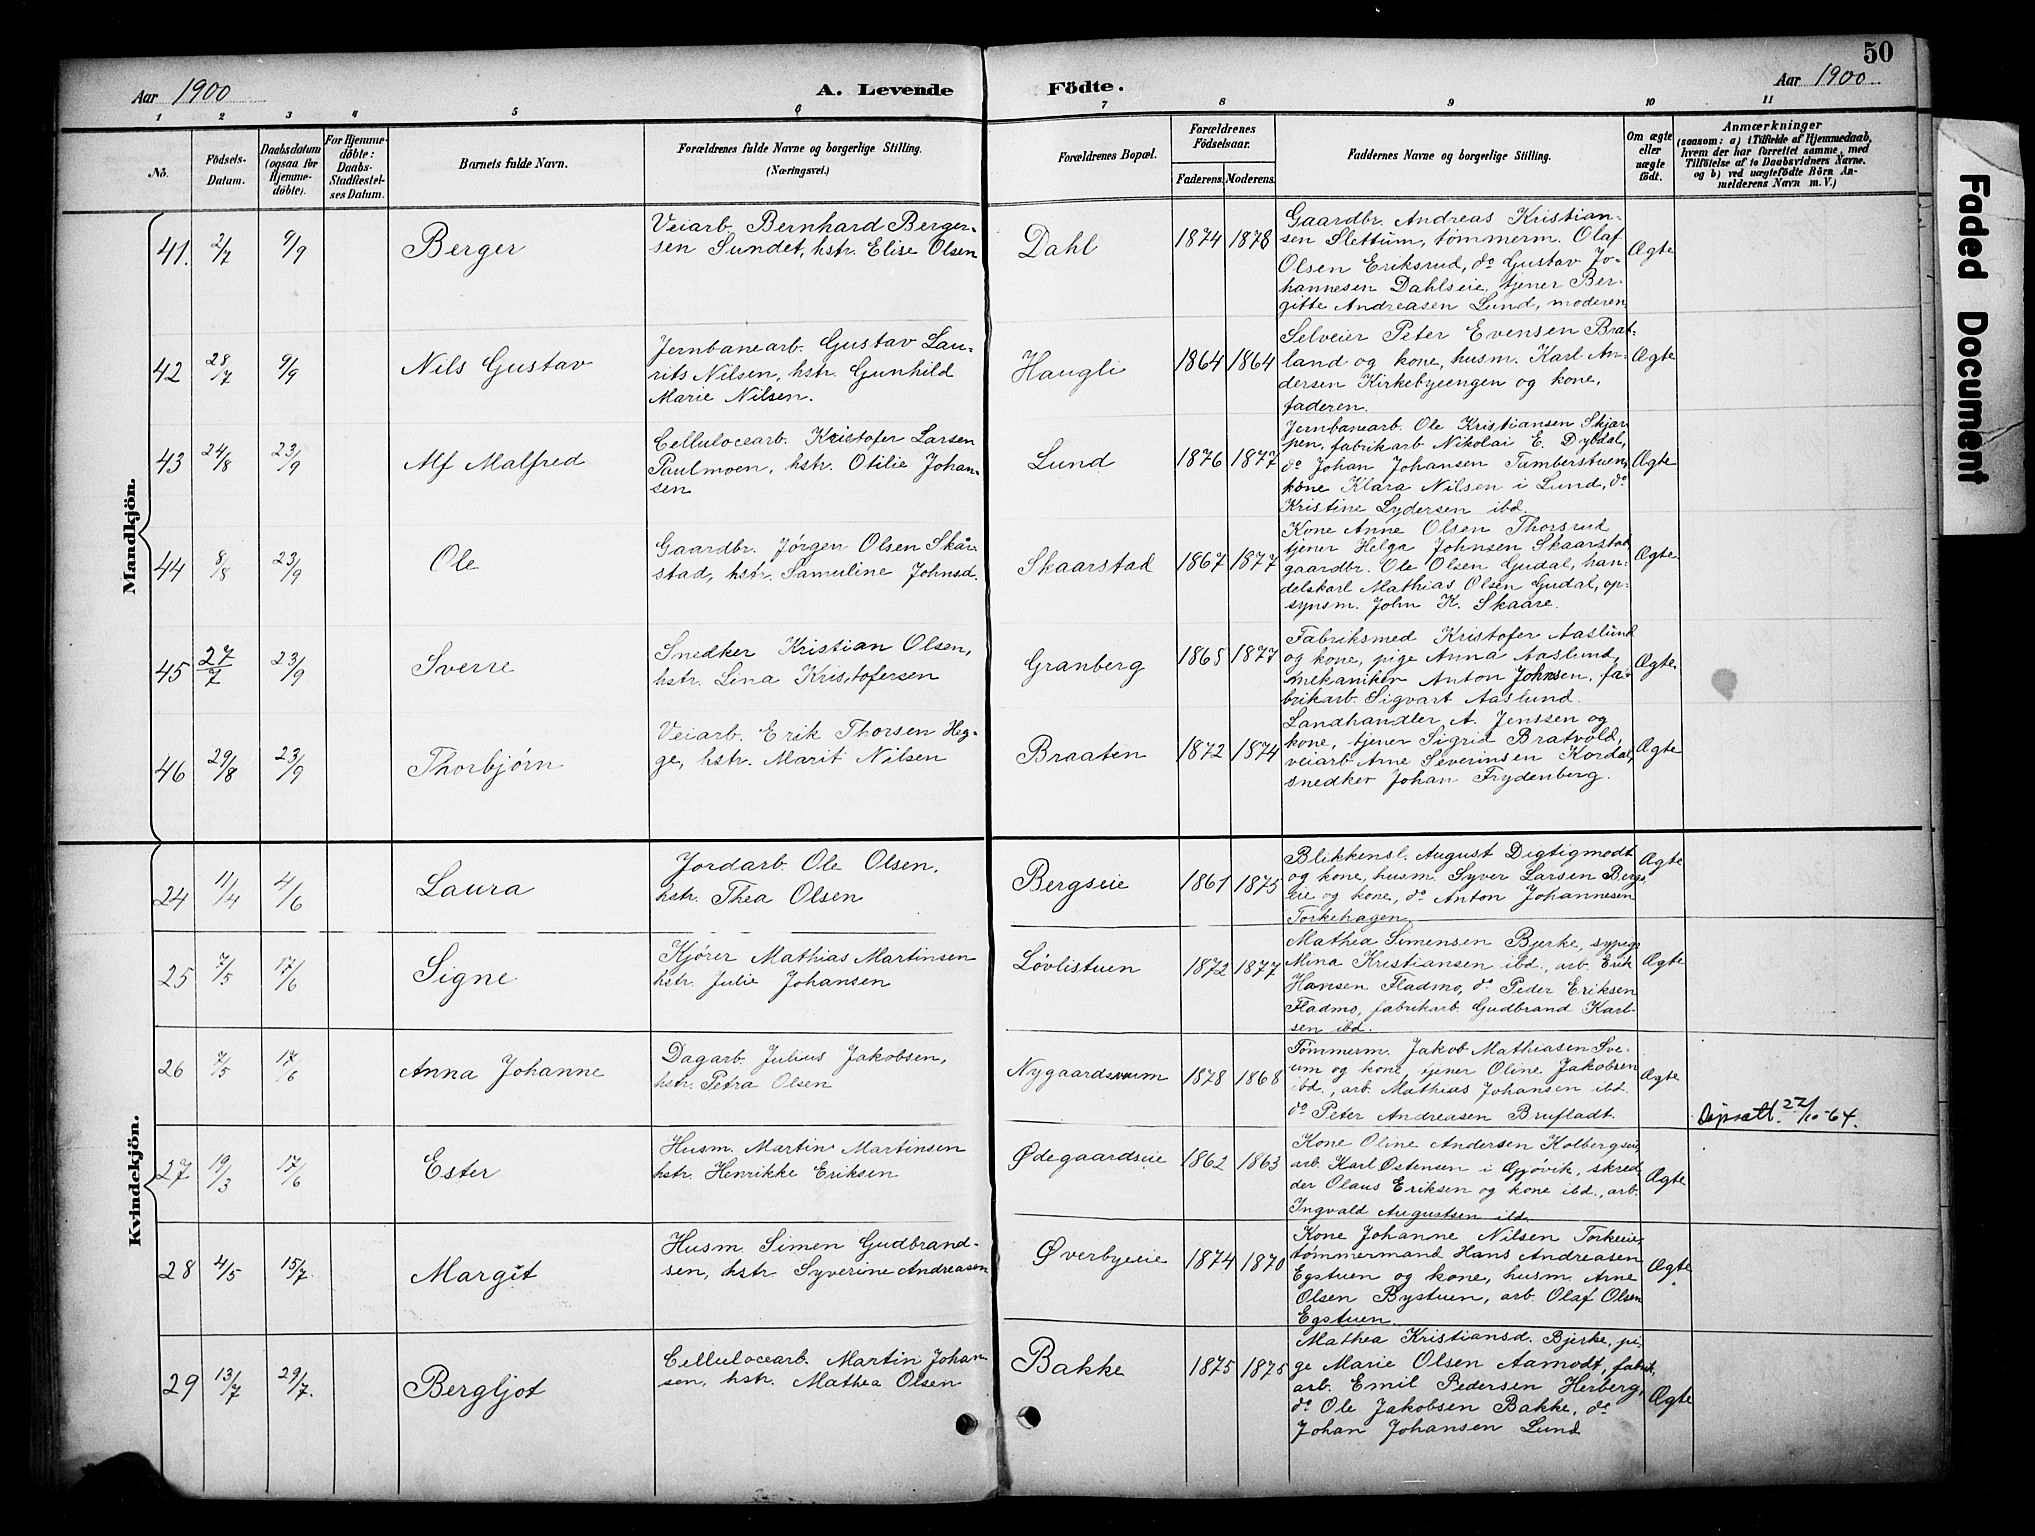 50
Aar 1900
A. Levende
Födte.
Aar 1900
1 2 3 4 5 6 7 8 9 10 11
No.
Födsels-
Datum.
Daabsdatum
(ogsaa for
Hjemme-
döbte).
For Hjemme-
döbte:
Daabs-
Stadfestel-
ses Datum.
Barnets fulde Navn.
Forældrenes fulde Navne og borgerlige Stilling.
(Næringsvei.)
Forældrenes Bopæl.
Forældrenes
Födselsaar.
Faderens. Moderens.
Faddernes Navne og borgerlige Stilling.
Om ægte
eller
uægte
födt.
Anmærkninger
(saasom: a) i Tilfælde af Hjemmedaab,
hvem der har forrettet samme, med
Tilföielse af to Daabsvidners Navne.
og b) ved uægtefödte Börn An-
melderens Navn m. V.)
Mandkjön.
41. 2/7 9/9
Berger
Veiarb. Bernhard Berger-
sen Sundet, hstr. Elise Olsen
Dahl
1874 1878
Gaardbr. Andreas Kristian-
sen Slettum, tømmerm. Olaf
Olsen Eriksrud, do Gustav Jo-
hannesen Dahlseie, tjener Ber-
gitte Andreasen Lund, moderen
Ægte
42 28/7 9/9
Nils Gustav
Jernbanearb. Gustav Lau-
rits Nilsen, hstr. Gunhild
Marie Nilsen.
Haugli
1864 1864
Selveier Peter Evensen Brat-
land og kone, husm. Karl An-
dersen Kirkebyeengen og kone,
faderen.
Ægte
43 24/8 23/9
Alf Malfred
Cellulocearb. Kristofer Larsen
Paulmoen, hstr. Otilie Johan-
sen
Lund
1876 1877
Jernbanearb. Ole Kristiansen Skjær-
pen, fabrikarb Nikolai E. Dybdal,
do Johan Johansen Tumberstuen,
kone Klara Nilsen i Lund, do
Kristine Lydersen ibd.
Ægte
44 8/8 23/9
Ole
Gaardbr. Jørgen Olsen Skår-
stad, hstr. Samuline Johnsd.
Skaarstad
1867 1877
Kone Anne Olsen Thorsrud
tjener Helga Johnsen Skaarstad,
gaardbr. Ole Olsen Gudal, han-
delskarl Mathias Olsen Gudal, op-
synsm. John K. Skaare.
Ægte
45 27/7 23/9
Sverre
Snedker Kristian Olsen,
hstr. Lina Kristofersen
Granberg
1865 1877
Fabriksmed Kristofer Aaslund
og kone, pige Anna Aaslund,
mekaniker Anton Johnsen, fa-
brikarb. Sigvart Aaslund.
Ægte
46 29/8 23/9
Thorbjørn
Veiarb. Erik Thorsen Heg-
ge, hstr. Marit Nilsen
Braaten
1872 1874
Landhandler A. Jenssen og
kone, tjener Sigrid Bratvold,
veiarb Arne Severinsen Kordal,
snedker Johan Frydenberg.
Ægte
Kvindekjön.
24 11/4 4/6
Laura
Jordarb. Ole Olsen,
hstr. Thea Olsen
Bergseie
1861 1875
Blikkensl. August Digtigmodt
og kone, husm. Syver Larsen Bergs-
eie og kone, do Anton Johannesen
Torkehagen
Ægte
25 7/5 17/6
Signe
Kjører Mathias Martinsen
hstr. Julie Johansen
Løvlistuen
1872 1877
Mathea Simensen Bjerke, sypige
Mina Kristiansen ibd., arb. Erik
Hansen Fladmo, do Peder Eriksen
Fladmo, fabrikarb. Gudbrand Karl-
sen ibd.
Ægte
26 7/5 17/6
Anna Johanne
Dagarb. Julius Jakobsen,
hstr. Petra Olsen
Nygaardsrum
1878 1868
Tømmerm. Jakob Mathiasen Sve-
um og kone, tjener Oline Jakobsen
ibd., arb. Mathias Johansen ibd.
do Peter Andreasen Brufladt.
Ægte
22/10-64.
27 19/3 17/6
Ester
Husm. Martin Martinsen
hstr. Henrikke Eriksen
Ødegaardseie
1862 1863
Kone Oline Andersen Kolbergseie,
arb. Karl Ostensen i Gjøvik, skred-
der Olaus Eriksen og kone ibd., arb.
Ingvald Augustsen ibd.
Ægte
28 4/5 15/7.
Margit
Husm. Simen Gudbrand-
sen, hstr. Syverine Andreasen
Øverbyeie
1874 1870
Kone Johanne Nilsen Torkeeie,
tømmermand Hans Andreasen
Egstuen og kone, husm. Arne
Olsen Bystuen, arb. Olaf Olsen
Egstuen.
Ægte
29 13/7 29/7.
Bergljot
Cellulocearb. Martin Johan-
sen, hstr. Mathea Olsen
Bakke
1875 1875
Mathea Kristiansd. Bjerke, pi-
ge Marie Olsen Aamodt, fabrik-
arb. Emil Pedersen Herberg,
do Ole Jakobsen Bakke, do
Johan Johansen Lund
Ægte
Faded Document